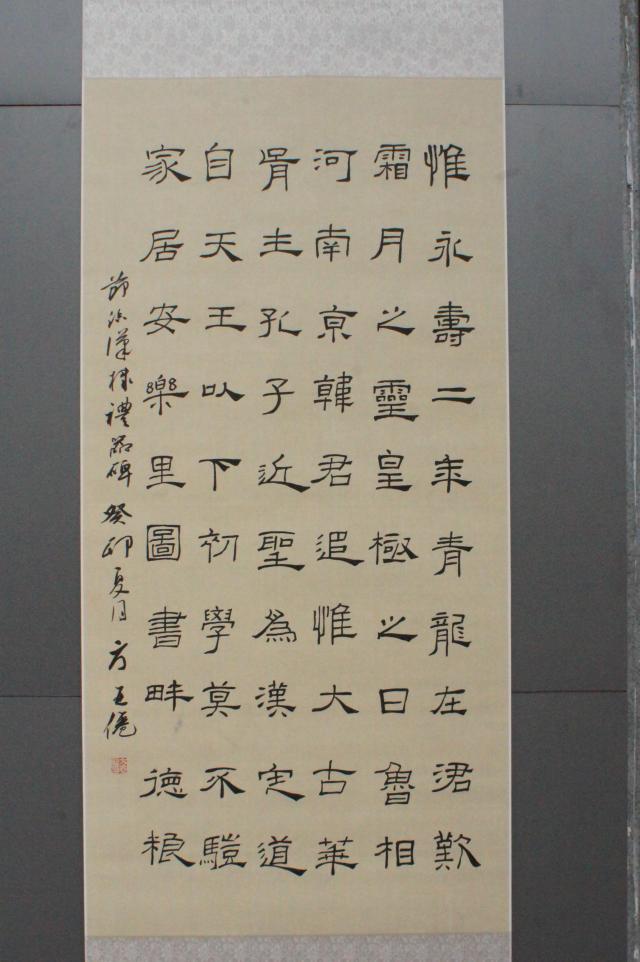 惟永壽二年青龍在涒歎
霜月之靈皇極之日魯相
河南京韓君追惟大古華
胥生孔子近聖為漢定道
自天王以下初學莫不䮗
家居安樂里圖書畔德粮
節臨漢隸禮器碑 癸卯夏月 方